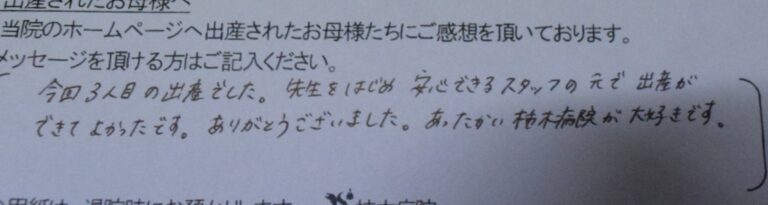 出産されたお母様へ
当院のホームページへ出産されたお母様たちにご感想を頂いております。
メッセージを頂ける方はご記入ください。
今回3人目の出産でした。先生をはじめ 安心できるスタッフの元で 出産が
できて よかったです。ありがとうございました。あったかい 柿木病院が 大好きです。
用紙は、退院時にお預かりします 柿木病院